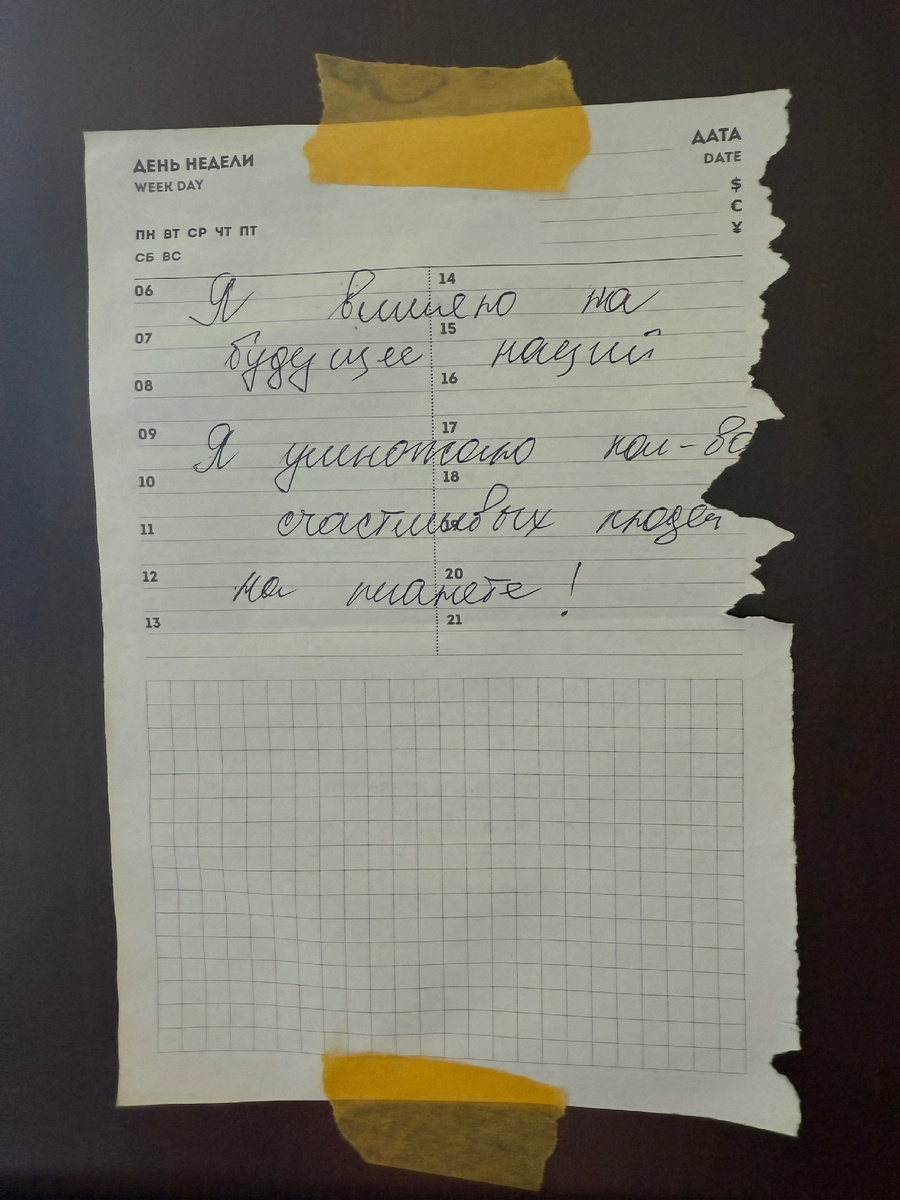 ДЕНЬ НЕДЕЛИ
WEEK DAY
ДАТА
DATE
$
€
¥
ПН ВТ СР ЧТ ПТ
СБ ВС
06
14
Я влияю на
07
15
будущее наций
08
16
09
17
Я умножаю кол-во
10
18
11
счастливых людей
12
20
на планете!
13
21